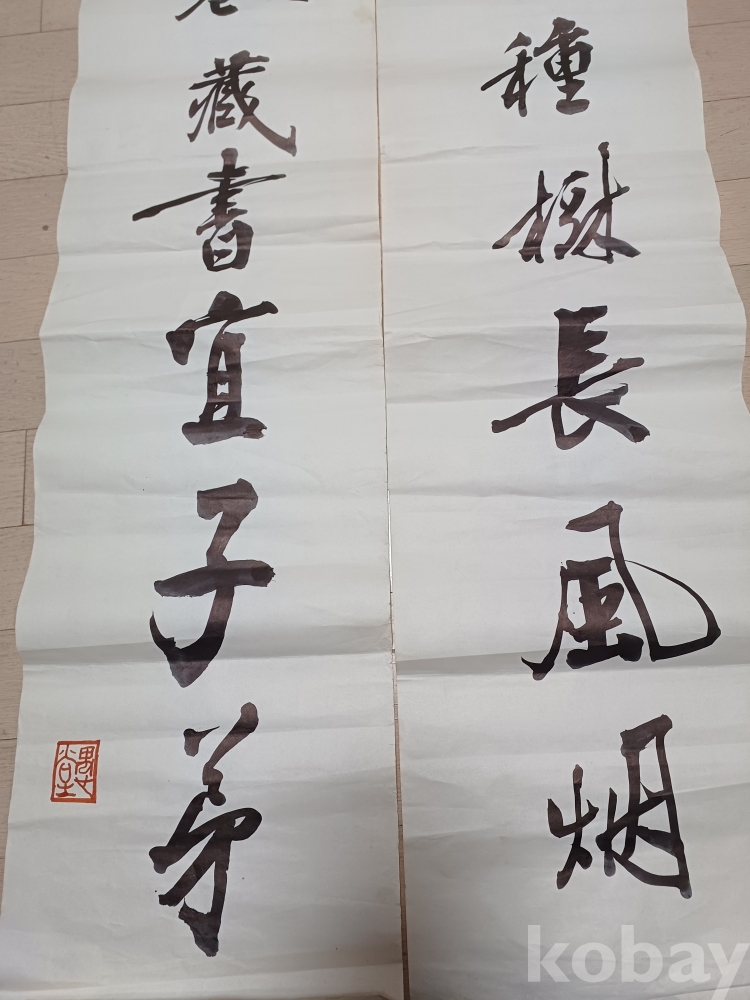 種樹長風烟
藏書宜子弟
kobay